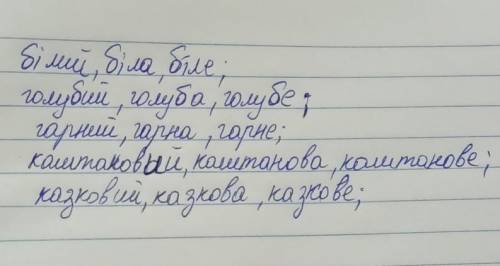 білий, біла, біле;
голубий, голуба, голубе;
гарний, гарна, гарне;
каштановий, каштанова, каштанове;
казковий, казкова, казкове;